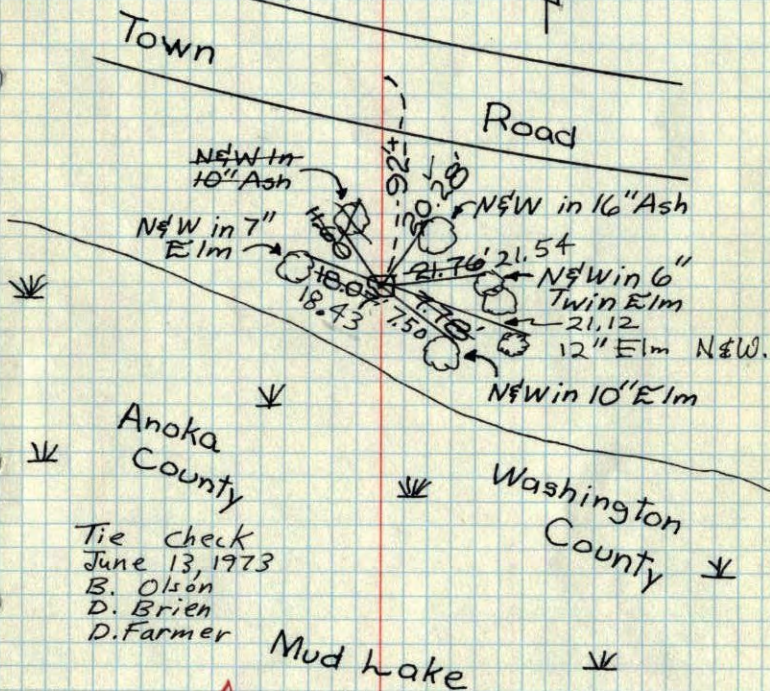 Town
Road
N&W in
10" Ash
92'±
20.28'
N&W in 16" Ash
N&W in 7"
Elm
21.76' 21.54
N&W in 6"
Twin Elm
18.43'
7.78'
7.50
21.12
12" Elm N&W.
N&W in 10" Elm
Anoka
County
Washington
County
Tie check
June 13, 1973
B. Olson
D. Brien
D. Farmer
Mud Lake